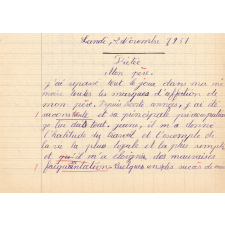 Lundi, 3 Décembre 1951
Dictée
Mon père.
J'ai repassé tout le jour dans ma mé
moire toutes les marques d'affection de
mon père. Depuis trente années, j'ai été
sa constante et sa principale préoccupation
Je lui dois tout. Jeune, il m'a donné
l'habitude du travail et l'exemple de
la vie la plus loyale et la plus simple
et qui m'a éloigné des mauvaises
fréquentation. Quelques succès de